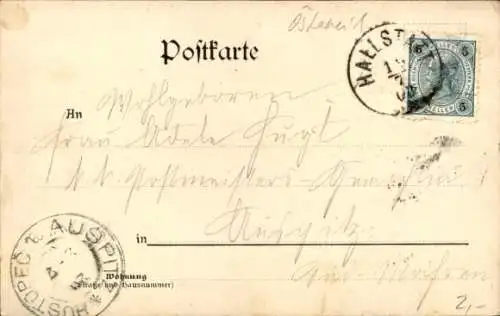 Österreich
Postkarte
HALLSTATT
5 5
HELLER
Wohlgeboren
An Frau Adele Hugl
k. k. Postmeisters-Gemahlin
in Auspitz
Süd-Mähren
AUSPITZ
HUSTOPEČ
Wohnung
(Straße und Hausnummer)
2,-